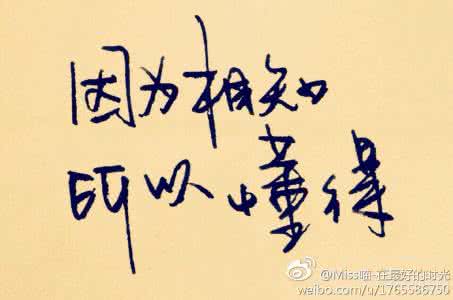 因为相知
所以懂得
@Miss喵-在最好的时光
weibo.com/u/1765586750